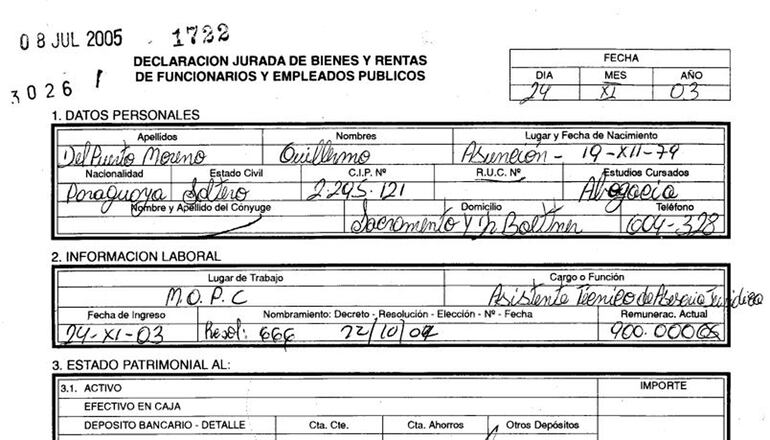 08 JUL 2005 1722
DECLARACION JURADA DE BIENES Y RENTAS
DE FUNCIONARIOS Y EMPLEADOS PUBLICOS
3026
FECHA
DIA MES AÑO
24 XI 03
1. DATOS PERSONALES
Apellidos Nombres Lugar y Fecha de Nacimiento
Del Puerto Moreno Guillermo Asunción - 19-XII-79
Nacionalidad Estado Civil C.I.P. Nº R.U.C. Nº Estudios Cursados
Paraguaya Soltero 2.295.121 Abogacia
Nombre y Apellido del Cónyuge Domicilio Teléfono
Sacramento y 604-328
2. INFORMACION LABORAL
Lugar de Trabajo Cargo o Función
M.O.P.C Asistente Técnico de Asesoria Juridica
Fecha de Ingreso Nombramiento: Decreto - Resolución - Elección - Nº - Fecha Remunerac. Actual
24-XI-03 Resol: 666 22/10/04 900.000
3. ESTADO PATRIMONIAL AL:
3.1. ACTIVO IMPORTE
EFECTIVO EN CAJA
DEPOSITO BANCARIO - DETALLE Cta. Cte. Cta. Ahorros Otros Depósitos